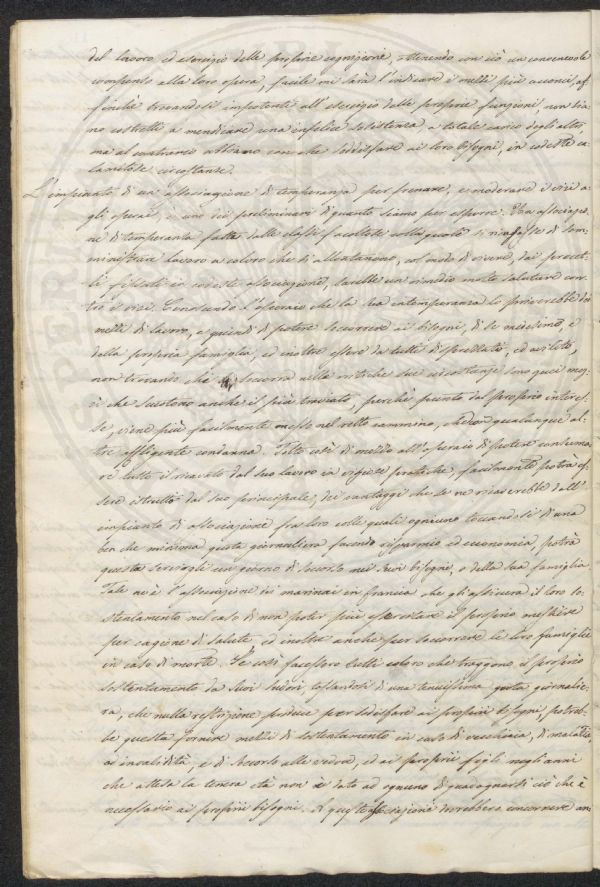 del lavoro ed esercizio delle proprie cognizioni, ottenendo con ciò un convenevole
compenso alla loro opera, facile mi sarà l'indicare i mezzi più acconci, af
finchè trovandosi impotenti all'esercizio delle proprie funzioni non sia
no costretti a mendicare una infelice sussistenza a totale carico degli altri,
ma al contrario abbiano con che soddisfare ai loro bisogni, in codeste ca
lamitose circostanze.
L'impianto di un'associazione di temperanza per frenare, e moderare i vizi a
gli operai, è uno dei preliminari di quanto siamo per esporre. Una associazio
ne di temperanza fatta dalle classi facoltose colla quale si di som
ministrar lavoro a coloro che si allontanano, col modo di vivere, dai precet
ti fissati in codeste associazioni, sarebbe un rimedio molto salutare con
tro i vizi. Conoscendo l'operaio che la sua intemperanza lo priverebbe dei
mezzi di lavoro, e quindi di potere soccorrere ai bisogni, di se medesimo, e
della propria famiglia, ed inoltre essere da tutti disprezzato, ed avvilito,
non trovando chi lo soccorra nelle critiche sue circostanze sono questi mez
zi che scuotono anche il più traviato, perchè punto dal proprio interes
se, viene più facilmente messo nel retto cammino, che con qualunque al
tra affliggente condanna. Tolto così di mezzo all'operaio di potere consuma
re tutto il ricavato dal suo lavoro in viziose pratiche, facilmente potrà es
sere istrutto dal suo principale, dei vantaggi che se ne ricaverebbe dall'
impianto di associazione fra loro colle quali ognuno toccandosi di una
ben che minima quota giornaliera facendo risparmio ed economia, potrà
questa servirgli un giorno di soccorso nei suoi bisogni, e della sua famiglia.
Tale si è l'associazione dei marinai in francia che gli assicura il loro so
stentamento nel caso di non poter più esercitare il proprio mestiere
per cagione di salute, ed inoltre anche per soccorrere le loro famiglie
in caso di morte. Se così facessero tutti coloro che traggono il proprio
sostentamento da suoi sudori, tassandosi di una tenuissima quota giornalie
ra, che nulla restrizione produce per soddisfare ai propri bisogni, potreb
be questa fornire mezzi di sostentamento in caso di vecchiaia, di malattia,
od invalidità, e di soccorso alle vedove, ed ai proprii figli negli anni
che attesa la tenera età non è dato ad ognuno di guadagnarsi ciò che è
necessario ai proprii bisogni. A quest'associazione dovrebbero concorrere an